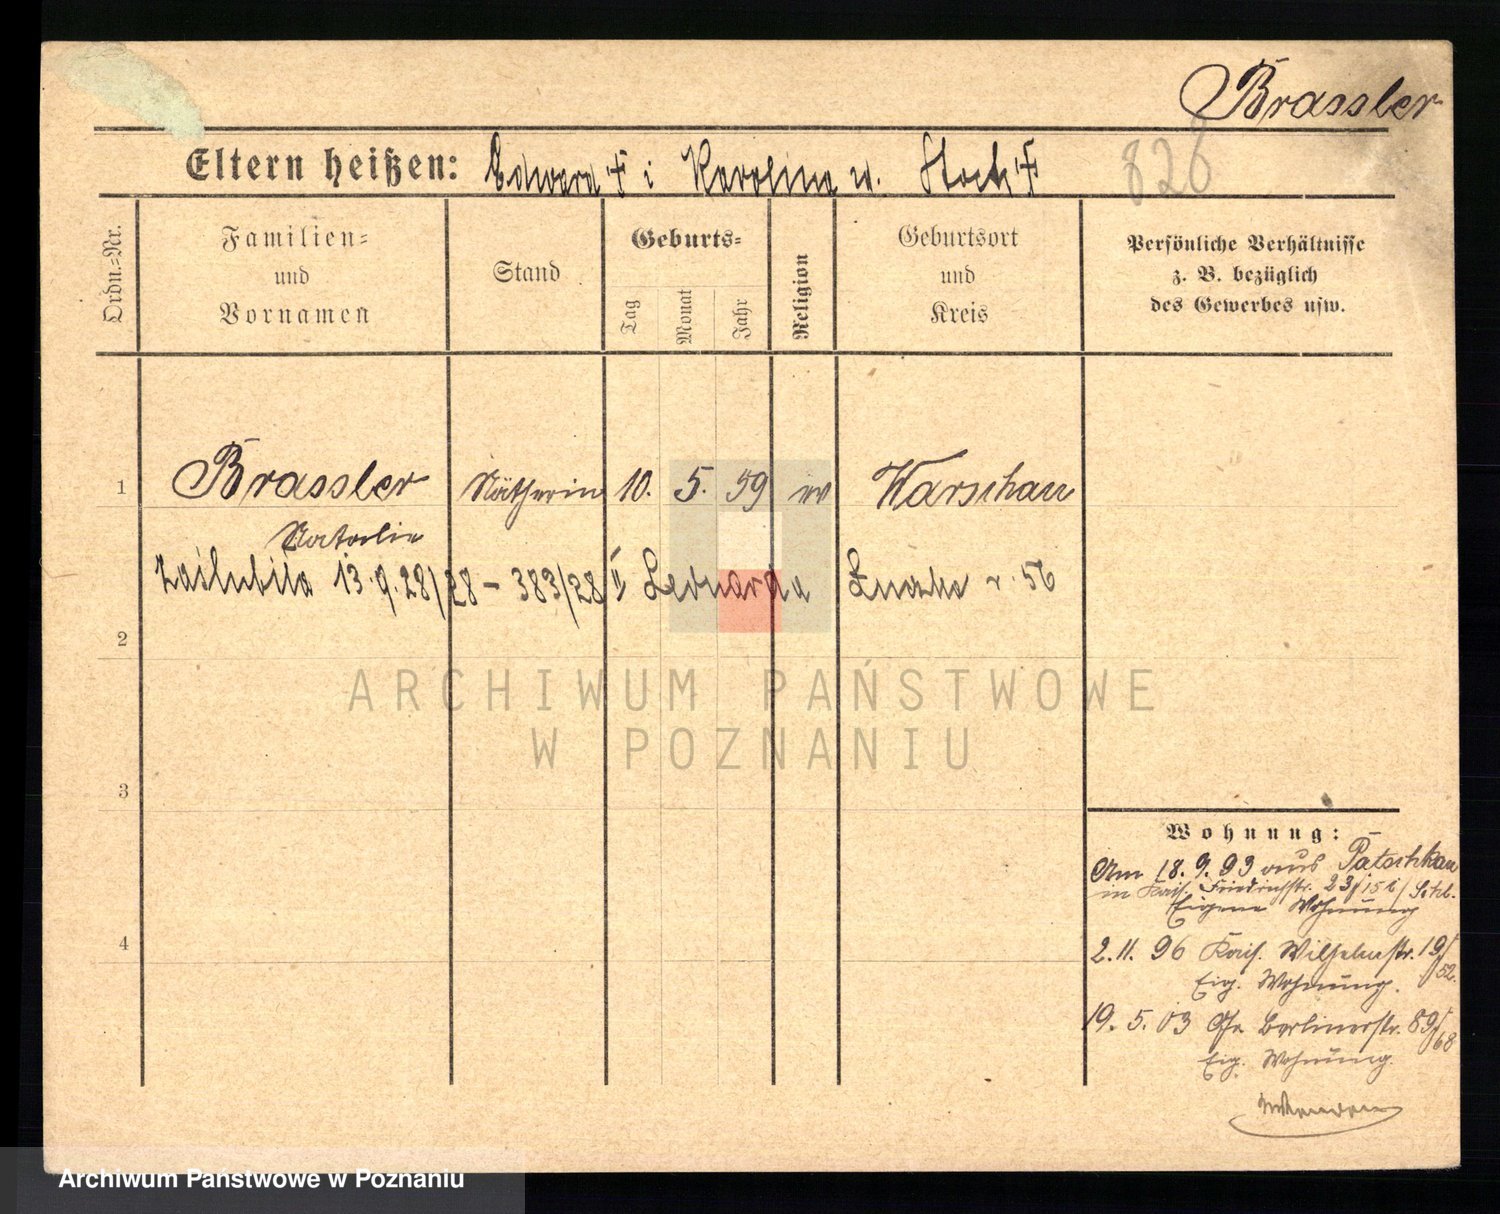 Brassler
826
Eltern heißen: Edward † i Karolina u. Stock †
Ordn.=Nr.
Familien=
und
Vornamen
Stand
Geburts=
Tag
Monat
Jahr
Religion
Geburtsort
und
Kreis
Persönliche Verhältnisse
z. B. bezüglich
des Gewerbes usw.
1
Brassler Nätherin 10. 5. 59 ev Warschau
Natalie
zaślubiła 13.9.28/28 - 383/28 Leonarda r. 56
2
ARCHIWUM PAŃSTWOWE
W POZNANIU
3
4
Wohnung:
Am 18.9.93 aus Patschkau
in Kais. Friedrichstr. 23/
Eigene Wohnung
2.11.96 Kais. Wilhelmstr. 19/52.
Eig. Wohnung.
19.5.03 Gr. Berlinerstr. 89/68
Eig. Wohnung.
Archiwum Państwowe w Poznaniu